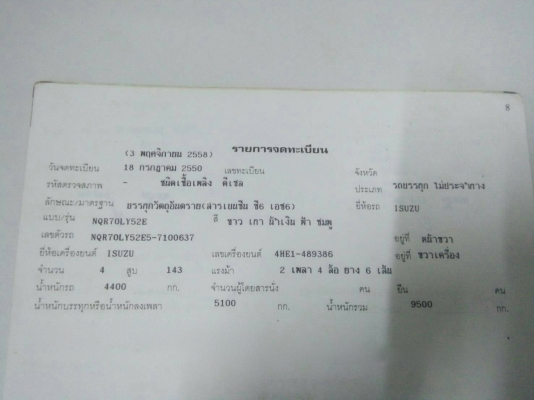 8
(3 พฤศจิกายน 2558) รายการจดทะเบียน
วันจดทะเบียน 18 กรกฎาคม 2550 เลขทะเบียน จังหวัด
รหัสตรวจสภาพ - ชนิดเชื้อเพลิง ดีเซล ประเภท รถบรรทุก ไม่ประจำทาง
ลักษณะ/มาตรฐาน บรรทุกวัตถุอันตราย(สารเบนซิน ซี6 เอช6) ยี่ห้อรถ ISUZU
แบบ/รุ่น NQR70LY52E สี ขาว เทา น้ำเงิน ฟ้า ชมพู
เลขตัวรถ NQR70LY52E5-7100637 อยู่ที่ หน้าขวา
ยี่ห้อเครื่องยนต์ ISUZU เลขเครื่องยนต์ 4HE1-489386 อยู่ที่ ขวาเครื่อง
จำนวน 4 สูบ 143 แรงม้า 2 เพลา 4 ล้อ ยาง 6 เส้น
น้ำหนักรถ 4400 กก. จำนวนผู้โดยสารนั่ง คน ยืน คน
น้ำหนักบรรทุกหรือน้ำหนักลงเพลา 5100 กก. น้ำหนักรวม 9500 กก.